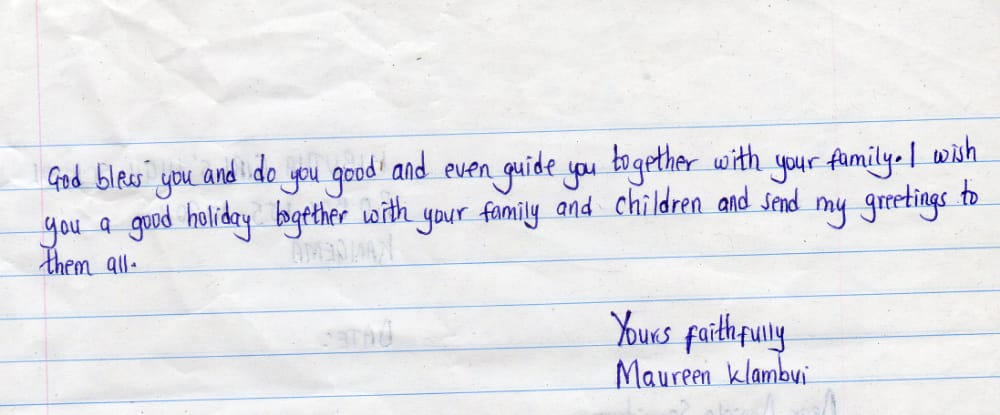 God bless you and do you good and even guide you together with your family. I wish
you a good holiday together with your family and children and send my greetings to
them all.
Yours faithfully
Maureen Klambui